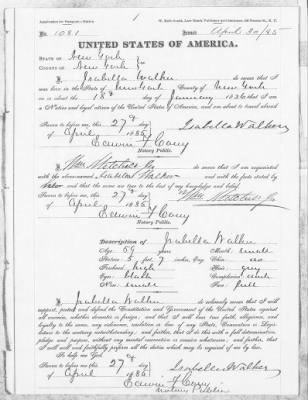 Application for Passport—Native.
1
No. 1081 Issued April 30/85
UNITED STATES OF AMERICA.
STATE OF New York
COUNTY OF New York
I, Isabella Walker do swear that I
was born in the State of New York County of New York
on or about the 18th day of January 1826; that I am
a Native and loyal citizen of the United States of America, and am about to travel abroad
Sworn to before me, this 27th day Isabella Walker
of April 1885
Edwin F. Corey
Notary Public.
I, Wm Mitchell Jr do swear that I am acquainted
with the above-named Isabella Walker and with the facts stated by
her and the same are true to the best of my knowledge and belief
Sworn to before me, this 27th day Wm Mitchell Jr
of April 1885
Edwin F. Corey
Notary Public.
Description of Isabella Walker
Age: 59 years Mouth: small
Stature: 5 feet 7 inches, Eng. Chin:
Forehead: high Hair: grey
Eyes: black Complexion: white
Nose: small Face: full
I, Isabella Walker do solemnly swear that I will
support, protect and defend the Constitution and Government of the United States against
all enemies, whether domestic or foreign; and that I will bear true faith, allegiance, and
loyalty to the same, any ordinance, resolution or law of any State, Convention or Legislature
to the contrary notwithstanding; and further, that I do this with a full determination,
pledge and purpose, without any mental reservation or evasion whatsoever; and further, that
I will well and faithfully perform all the duties which may be required of me by law.
So help me God.
Sworn to before me, this 27th day Isabella Walker
of April 1885
Edwin F. Corey
Notary Public